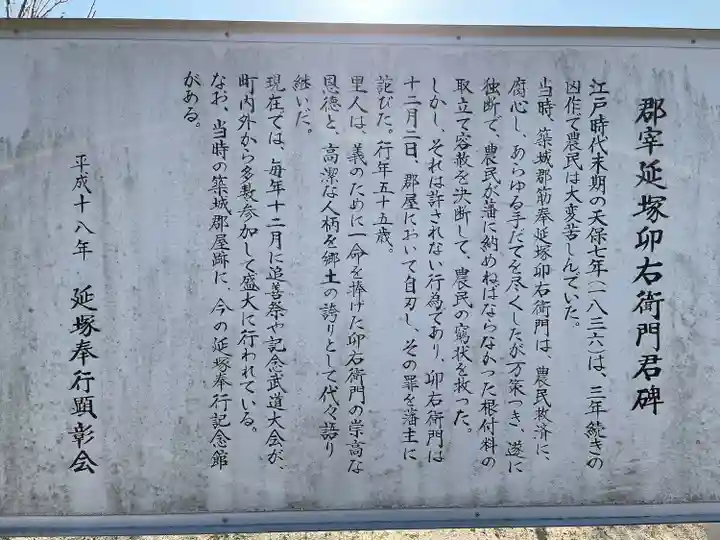 郡宰延塚卯右衛門君碑
江戸時代末期の天保七年(一八三六)は、三年続きの
凶作で農民は大変苦しんでいた。
当時、築城郡筋奉延塚卯右衛門は、農民救済に、
腐心し、あらゆる手だてを尽くしたが万策つき、遂に
独断で、農民が藩に納めねばならなかった根付料の
取立て容赦を決断して、農民の窮状を救った。
しかし、それは許されない行為であり、卯右衛門は
十二月二日、郡屋において自刃し、その罪を藩主に
詫びた。行年五十五歳。
里人は、義のために一命を捧げた卯右衛門の崇高な
恩徳と、高潔な人柄を郷土の誇りとして代々語り
継いだ。
現在では、毎年十二月に追善祭や記念武道大会が、
町内外から多数参加して盛大に行われている。
なお、当時の築城郡屋跡に、今の延塚奉行記念館
がある。
平成十八年 延塚奉行顕彰会